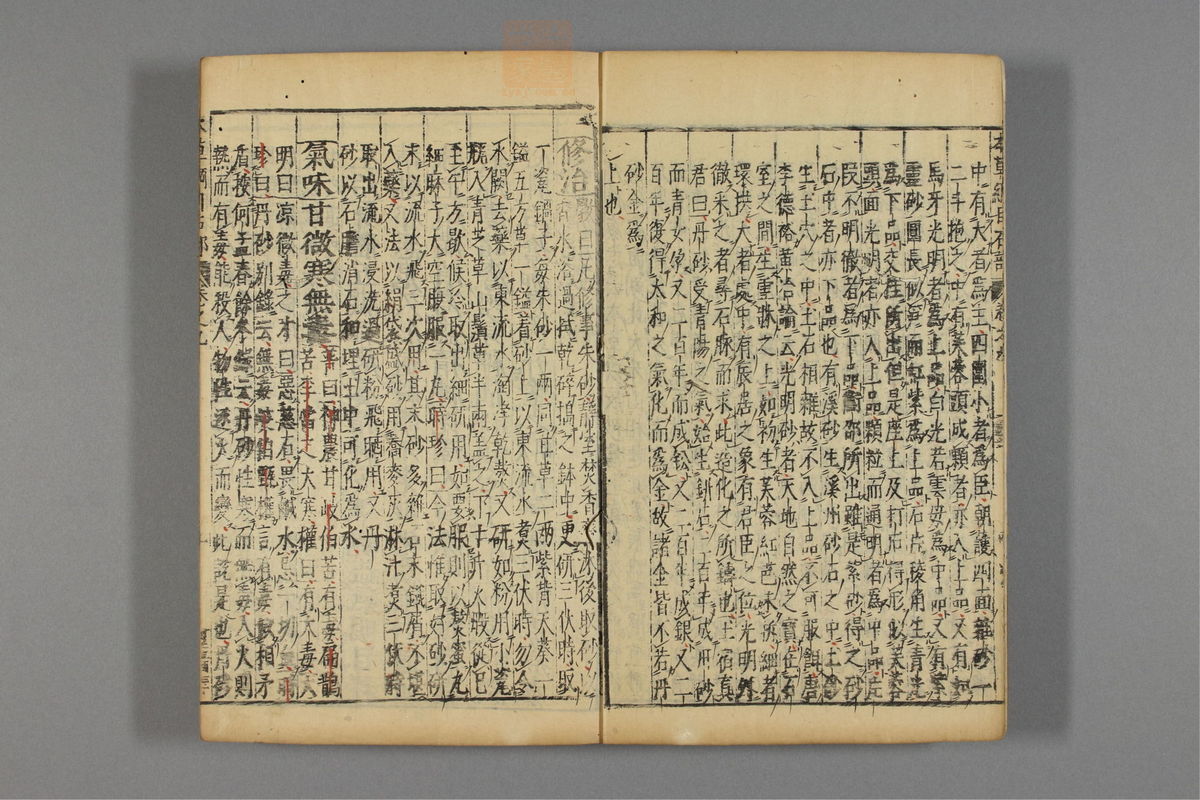 本草綱目石部
中有大者爲主四圍小者爲臣朝護四面雜砂一
二斗抱之中有芙蓉頭成顆者亦入上品又有如
馬牙光明者爲上品白光若雲母爲中品又有
靈砂圓長似笋而紅紫爲上品石片稜角生青
爲下品交桂所出但是座上及打石得形似芙蓉
頭面光明者亦入上品顆粒而通明者爲中品片
段不明徹者爲下品衡邵所出雖是紫砂得之砂
石中者亦下品也有溪砂生溪州砂石之中土砂
生土穴之中土石相雜故不入上品不可服餌
李德裕黄冶論云光明砂者天地自然之寶在石
室之間生雪牀之上如初生芙蓉紅芭未拆細者
環拱大者處中有辰居之象有君臣之位光明外
徹采之者尋石脉而求此造化之所鑄也土宿真
君曰丹砂受青陽之氣始生鉱石二百年成丹砂
而青女孕又二百年而成鉛又二百年成銀又二
百年復得太和之氣化而爲金故諸金皆不若丹
砂金爲
上也
修治 斅曰凡修事朱砂靜室焚香沐後取砂以
香水浴過拭乾碎搗之鉢中更研三伏時取
一瓷鍋子每朱砂一兩同甘草二兩紫背天葵一
鎰五方草一鎰着砂上以東流水煮三伏時勿令
水闕去藥以東流水淘淨乾熬又研如粉用小瓷
瓶入青芝草山鬚草半兩蓋之下十斤火煅從巳
至子方歇候冷取出細研用如要服則以熬蜜丸
細麻子大空腹服一丸時珍曰今法惟取好砂研
末以流水飛三次用其末砂多雜石末鐵屑不堪
入藥又法以絹袋盛砂用蕎麥灰淋汁煮三伏時
取出流水浸洗過研粉飛晒用又丹
砂以石膽消石和埋土中可化爲水
氣味甘微寒無毒 普曰神農甘岐伯苦有毒扁鵲
苦李當之大寒權曰有大毒大
明曰凉微毒之才曰惡慈石畏鹹水忌一切血
珍曰丹砂别錄云無毒岐伯甄權言有毒似相矛
盾按何孟春餘冬錄云丹砂性寒而無毒入火則
熱而有毒能殺人物性逐火而變此說是也丹砂